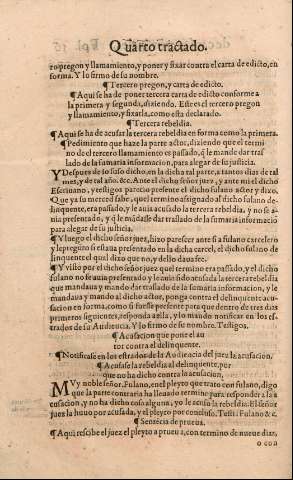 Quarto tractado.
ro pregon y llamamiento, y poner y fixar contra el carta de edicto, en
forma. Y lo firmo de su nombre.
¶ Tercero pregon, y carta de edicto.
¶ Aqui se ha de poner tercera carta de edicto conforme a
la primera y segunda, diziendo. Este es el tercero pregon
y llamamiento, y fixarla, como esta declarado.
¶ Tercera rebeldia.
¶ Aqui se ha de acusar la tercera rebeldia en forma como la primera.
¶ Pedimiento que haze la parte actor, diziendo que el termi
no de el tercero llamamiento es passado, q̃ le mande dar tras
lado de la sumaria informacion, para alegar de su justicia.
Y Despues de lo suso dicho, en la dicha tal parte, a tantos dias de tal
mes, y de tal año. &c. Ante el dicho señor juez, y ante mi el dicho
Escriuano, y testigos parecio presente el dicho fulano actor y dixo.
Que ya su merced sabe, que el termino assignado al dicho fulano de-
linquente, era passado, y le auia acusado la tercera rebeldia, y no se a-
uia presentado, y q̃ le mãdasse dar traslado de la sumaria informaciõ
para alegar de su justicia.
¶ Y luego el dicho señor juez, hizo parescer ante si a fulano carcelero
y le pregunto si estaua presentado en la dicha carcel, el dicho fulano de
linquente el qual dixo que no, y dello daua fee.
¶ Y visto por el dicho señor juez que el termino era passado, y el dicho
fulano no se auia presentado y le auia sido acusada la tercera rebeldia
que mandaua y mando dar traslado de la sumaria informacion, y le
mandaua y mando al dicho actor, ponga contra el delinquente acu-
sacion en forma, como si fuesse presente para que dentro de tres dias
primeros siguientes, responda a ella, y lo mando notificar en los es-
trados de su Audiencia. Y lo firmo de su nombre. Testigos.
¶ Acusacion que pone el au
tor contra el delinquente.
¶ Notificase en los estrados de la Audiencia del juez la acusacion.
¶ Acusase la rebeldia al delinquente, por
que no ha dicho contra la acusacion.
MVy noble señor. Fulano, en el pleyto que trato con fulano, digo
que la parte contraria ha lleuado termino para responder a la a
cusacion, y no ha dicho cosa alguna, yo le acuso la rebeldia. El señor
juez la huuo por acusada, y el pleyto por concluso. Testi. Fulano &c.
¶ Sentẽcia de prueua.
¶ Aqui rescibe el juez el pleyto a prueua, con termino de nueue dias,
o con